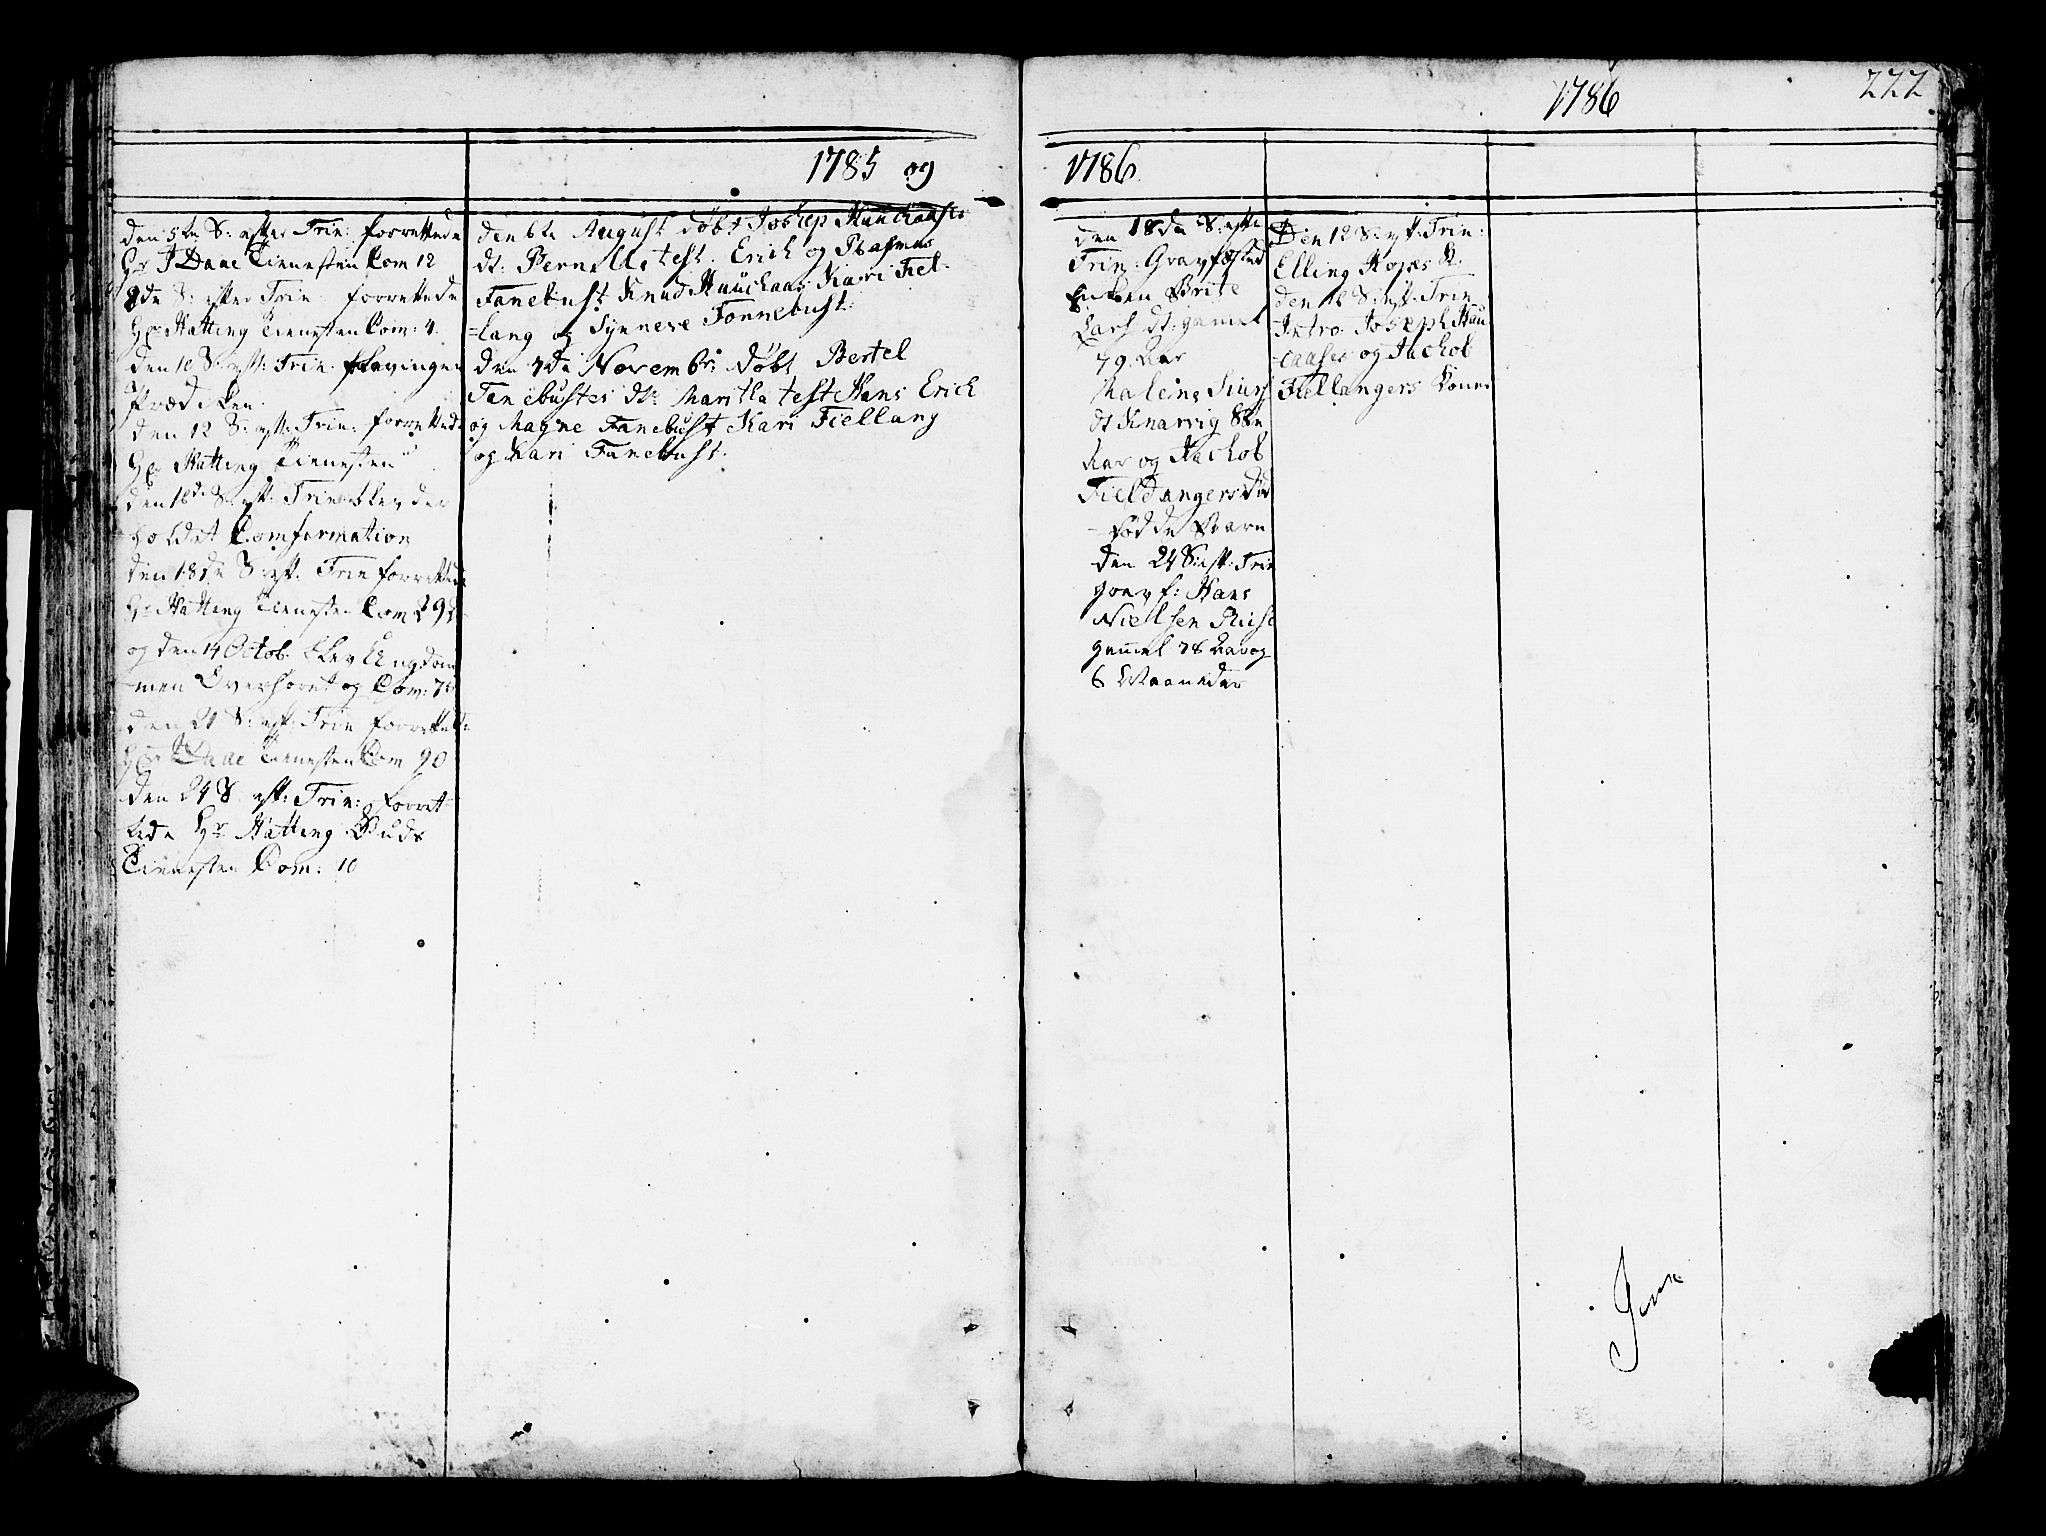 1786
222
1785 og
1786
den 5te S: efter Trin: forrettede
Hr J Daae Tienesten Com 12
8de S: efter Trin: forrettede
Hr Hatting Tienesten Com: 4.
den 10 S: eft: Trin:
Prædiken.
den 12 S: eft: Trin: forrettede
Hr Hatting Tienesten
den 16de S: eft: Trin: blev der
holdet Comfermation
den 18de S: eft: Trin forrettede
Hr Hatting Tienesten Com
og den 14 Octob: blev Ungdom
men Overhøret og Com:
den 21 S: eft: Trin forrettede
Hr Daae Tienesten Com 90
den 24 S. eft: Trin: forret
tede Hr Hatting Guds
Tienesten Com: 10
den 6te August døbt Joshep Hauchaases
dt: Pernelle test. Erich og
Fanebust Knud Hauchaas Kari Fiel-
=lang og Synneve Fonnebust:
den 7de Novembr: døbt Bertel
Fanebustes dt: Maritta test Hans Erich
og Magne Fanebust Kari Fiellang
og Kari Fanebust.
den 18de S: efte
Trin: Gravfæsted
Enken Brite
Lars dt: gamel
79 Aar
Malene Siurs
dt Knarvig
Aar og Jachob
Fieldangers Død
fødde Barn
den 24 S: eft: Trin
gravf: Hans
Nielsen
gamel 78 Aar og
6 Maaneder
Den 12 S: eft. Trin:
Elling K.
den S: eft. Trin
Intro: Joseph Hau
=caases og Jachob
Fiellangers Koner